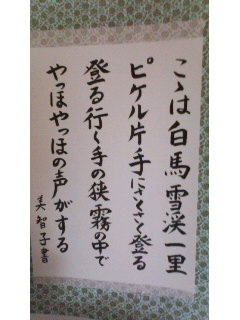 こゝは白馬雪渓一里
ピケル片手にさくさく登る
登る行く手の狭霧の中で
やっほやっほの声がする
美智子書